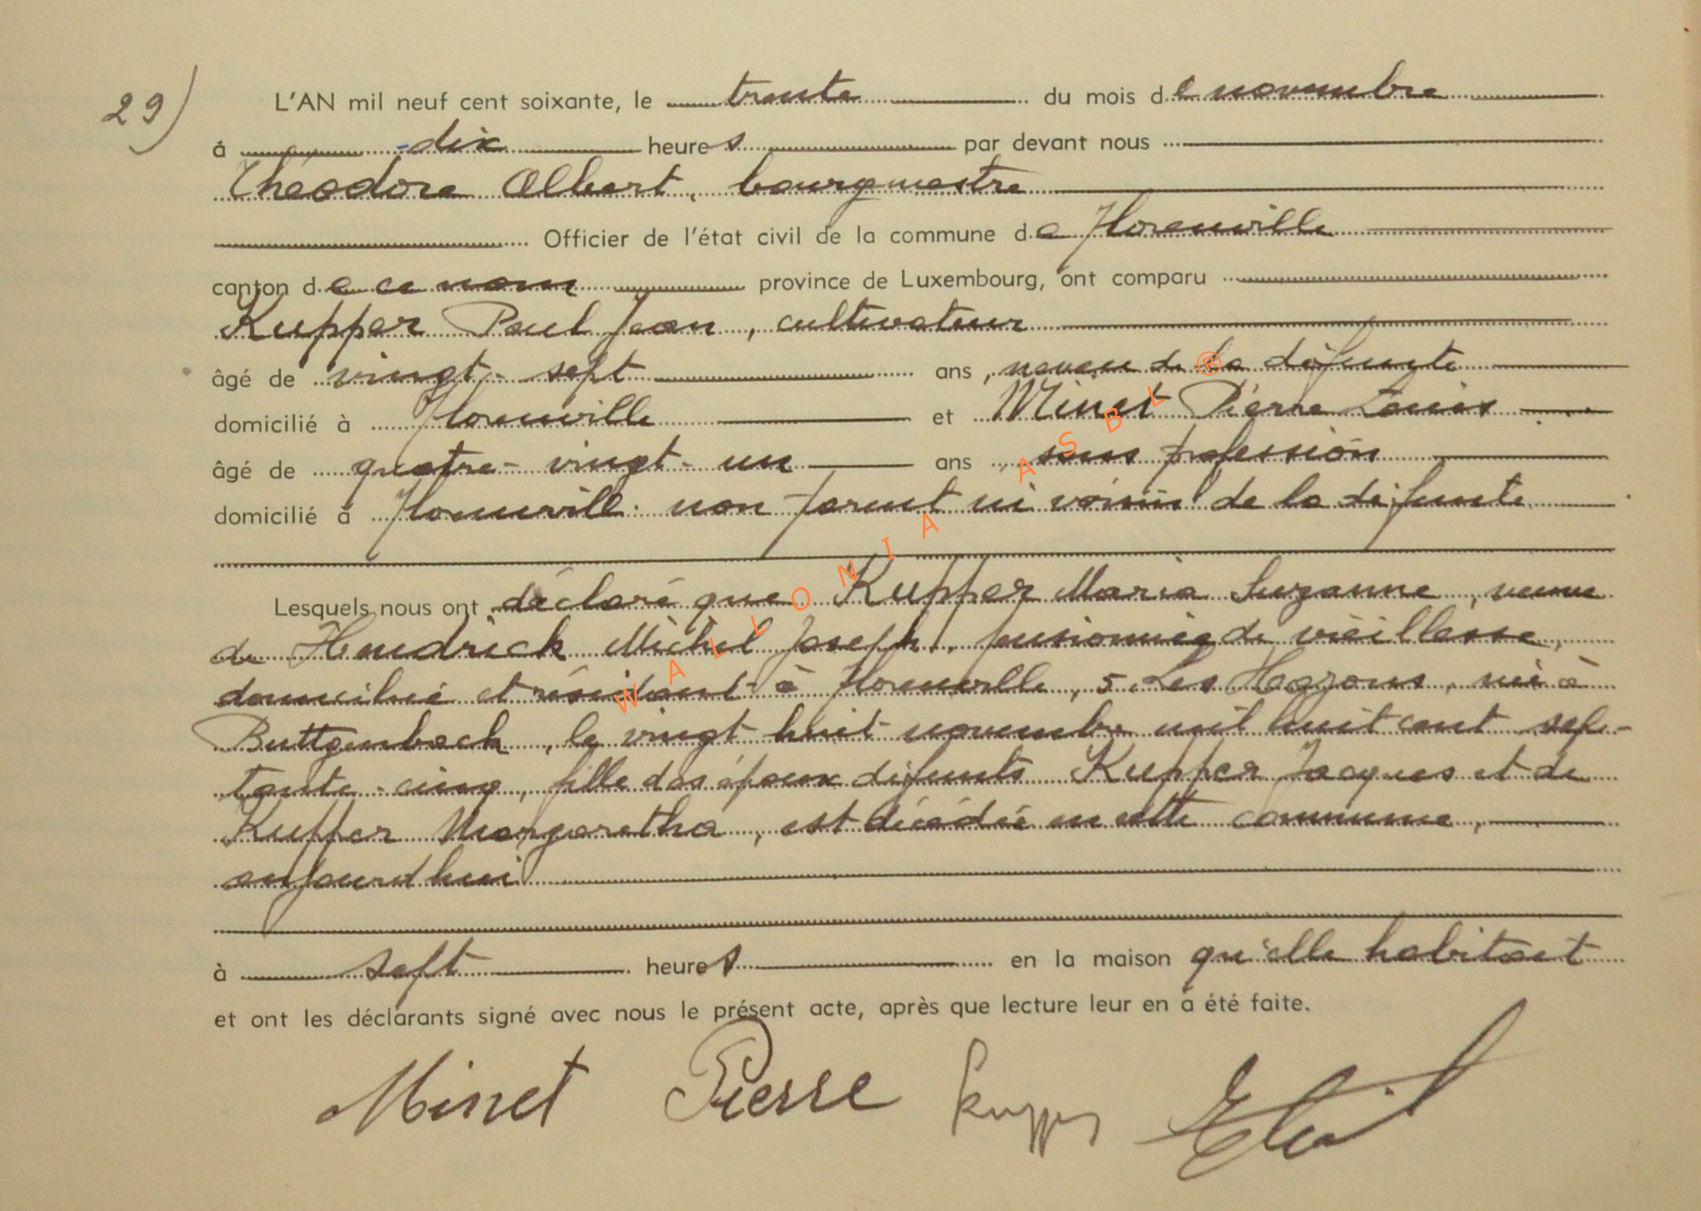 29) L'AN mil neuf cent soixante, le trente du mois de novembre
à dix heures par devant nous
Théodore Albert, bourgmestre
Officier de l'état civil de la commune de Florenville
canton de ce nom province de Luxembourg, ont comparu
Kupper Paul Jean, cultivateur
âgé de vingt-sept ans, neveu de la défunte
domicilié à Florenville et Minet Pierre Louis
âgé de quatre-vingt-un ans, sans profession
domicilié à Florenville non parent ni voisin de la défunte
Lesquels nous ont déclaré que Kupper Maria Suzanne, veuve
de Hendrick Michel Joseph, pensionnée de vieillesse,
domiciliée et résidant à Florenville, 5, Les Hazons, née à
Buttgenbach, le vingt huit novembre mil huit cent sep-
tante-cinq, fille des époux défunts Kupper Jacques et de
Kupper Margaretha, est décédée en cette commune,
aujourd'hui
à sept heures en la maison qu'elle habitait
et ont les déclarants signé avec nous le présent acte, après que lecture leur en a été faite.
Minet Pierre Kupper
WALLONIA ASBL ®